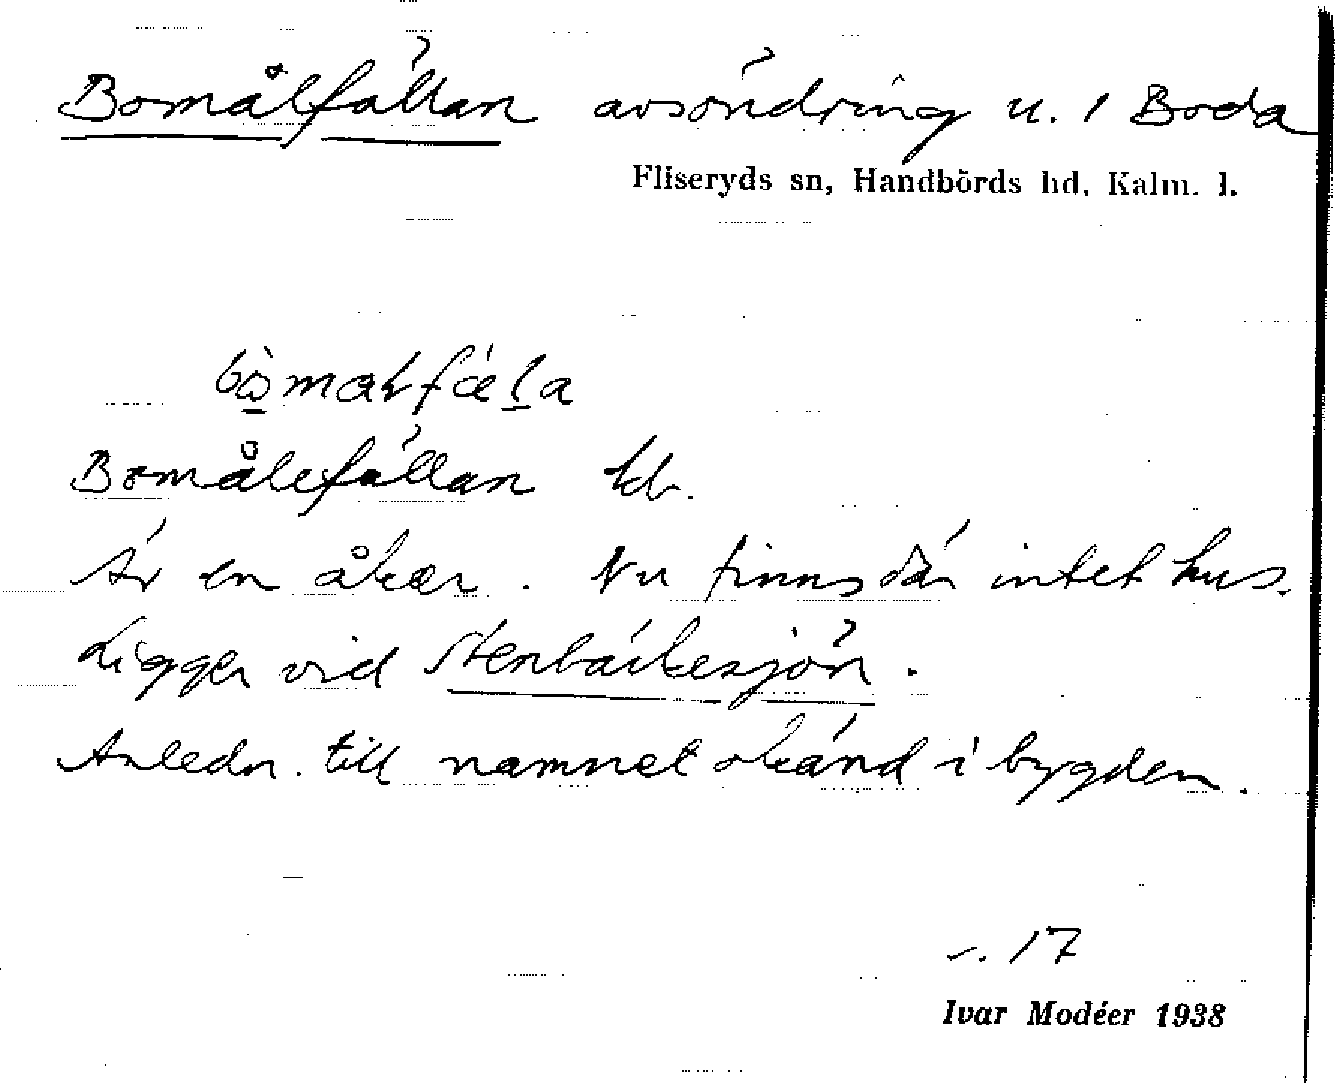 Bomålfällan avsöndring u. 1 Boda
Fliseryds sn, Handbörds hd, Kalm. l.
Bomålefällan Jdb.
Är en åker. Nu finns där intet hus.
Ligger vid Stenbäckesjön.
Anledn. till namnet okänd i bygden.
s. 17
Ivar Modéer 1938